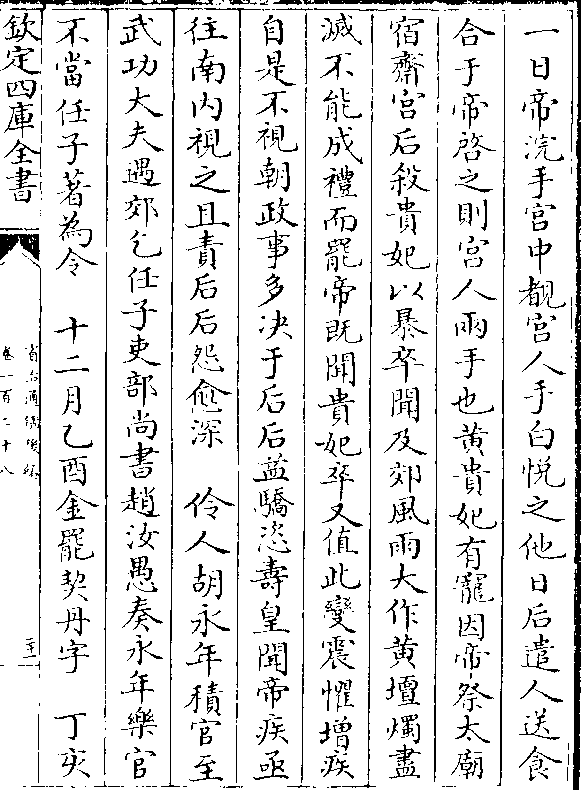 一日帝浣手宫中覩宫人手白悅之他日后遣人送食
合于帝啓之則宫人兩手也黄貴妃有寵因帝祭太廟
宿齋宫后殺貴妃以暴卒聞及郊風雨大作黄壇燭盡
滅不能成禮而罷帝既聞貴妃卒又值此變震懼增疾
自是不視朝政事多决于后后益驕恣壽皇聞帝疾亟
往南内視之且責后后怨愈深　伶人胡永年積官至
武功大夫遇郊乞任子吏部尚書趙汝愚奏永年樂官
不當任子著為令　十二月乙酉金罷契丹字　丁亥
欽定四庫全書
資治通鑑後編
卷一百二十八